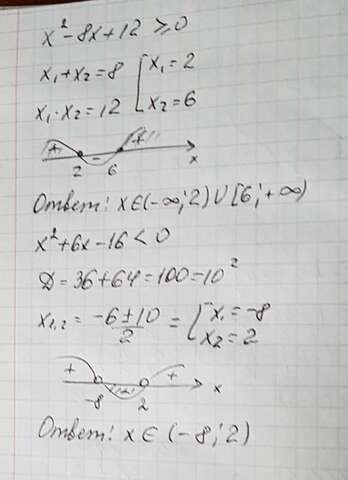 x² - 8x + 12 ≥ 0
x₁ + x₂ = 8 [ x₁ = 2
x₁ · x₂ = 12 [ x₂ = 6
+ - + x
2 6
Ответ: x ∈ (-∞; 2) ∪ [6; +∞)
x² + 6x - 16 < 0
D = 36 + 64 = 100 = 10²
x₁,₂ = (-6 ± 10)/2 = [ x₁ = -8
x₂ = 2
+ - + x
-8 2
Ответ: x ∈ (-8; 2)